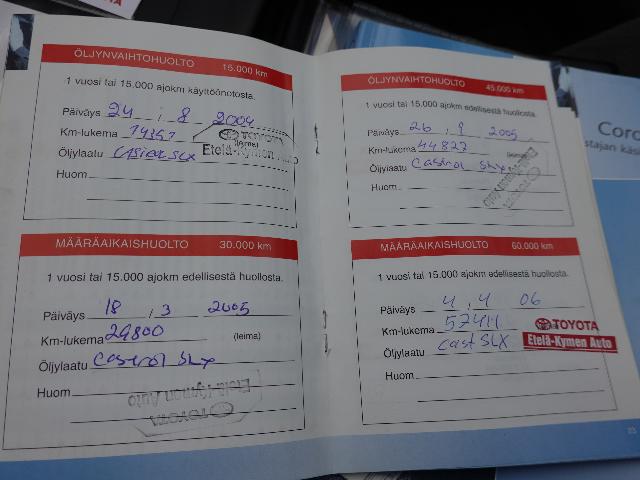 ÖLJYNVAIHTOHUOLTO 15.000 km
1 vuosi tai 15.000 ajokm käyttöönotosta.
Päiväys 24 . 8 2004
Km-lukema
(leima)
TOYOTA
Etelä-Kymen Auto
Öljylaatu Castrol SLX
Huom
MÄÄRÄAIKAISHUOLTO 30.000 km
1 vuosi tai 15.000 ajokm edellisestä huollosta.
Päiväys 18 . 3 2005
Km-lukema 29800 (leima)
Öljylaatu Castrol SLX
Huom
Etelä-Kymen Auto
TOYOTA
ÖLJYNVAIHTOHUOLTO 45.000 km
1 vuosi tai 15.000 ajokm edellisestä huollosta.
Päiväys 26 . 9 2005
Km-lukema 44827 (leima)
Öljylaatu Castrol SLX
Huom
MÄÄRÄAIKAISHUOLTO 60.000 km
1 vuosi tai 15.000 ajokm edellisestä huollosta.
Päiväys 4 . 4 06
Km-lukema 57411
TOYOTA
Etelä-Kymen Auto
Öljylaatu Cast SLX
Huom
23
Coro
stajan käsi